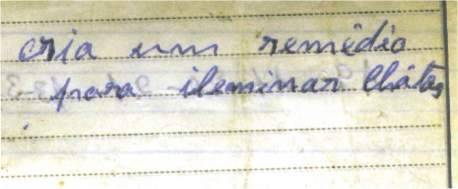 cria um remédio
para ileminar Chátos